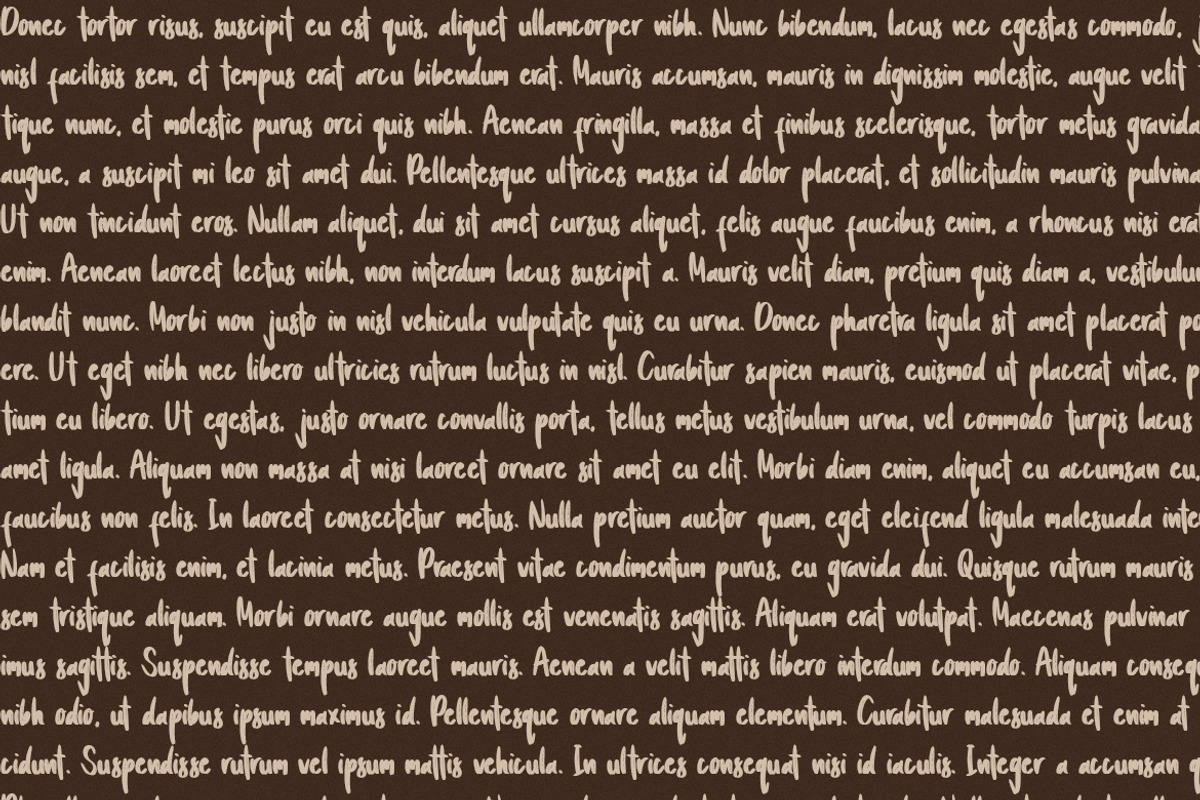 Donec tortor risus, suscipit eu est quis, aliquet ullamcorper nibh. Nunc bibendum, lacus nec egestas commodo,
nisl facilisis sem, et tempus erat arcu bibendum erat. Mauris accumsan, mauris in dignissim molestie, augue velit
tique nunc, et molestie purus orci quis nibh. Aenean fringilla, massa et finibus scelerisque, tortor metus gravida
augue, a suscipit mi leo sit amet dui. Pellentesque ultrices massa id dolor placerat, et sollicitudin mauris pulvina
Ut non tincidunt eros. Nullam aliquet, dui sit amet cursus aliquet, felis augue faucibus enim, a rhoncus nisi erat
enim. Aenean laoreet lectus nibh, non interdum lacus suscipit a. Mauris velit diam, pretium quis diam a, vestibulum
blandit nunc. Morbi non justo in nisl vehicula vulputate quis eu urna. Donec pharetra ligula sit amet placerat po
ere. Ut eget nibh nec libero ultricies rutrum luctus in nisl. Curabitur sapien mauris, euismod ut placerat vitae, p
tium eu libero. Ut egestas, justo ornare convallis porta, tellus metus vestibulum urna, vel commodo turpis lacus
amet ligula. Aliquam non massa at nisi laoreet ornare sit amet eu elit. Morbi diam enim, aliquet eu accumsan eu,
faucibus non felis. In laoreet consectetur metus. Nulla pretium auctor quam, eget eleifend ligula malesuada inte
Nam et facilisis enim, et lacinia metus. Praesent vitae condimentum purus, eu gravida dui. Quisque rutrum mauris
sem tristique aliquam. Morbi ornare augue mollis est venenatis sagittis. Aliquam erat volutpat. Maecenas pulvinar
imus sagittis. Suspendisse tempus laoreet mauris. Aenean a velit mattis libero interdum commodo. Aliquam conseq
nibh odio, ut dapibus ipsum maximus id. Pellentesque ornare aliquam elementum. Curabitur malesuada et enim at
cidunt. Suspendisse rutrum vel ipsum mattis vehicula. In ultrices consequat nisi id iaculis. Integer a accumsan q